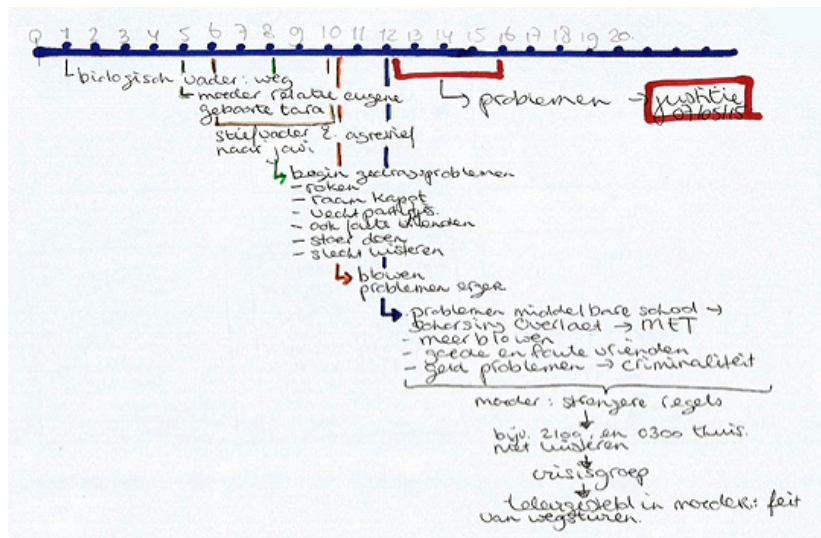 0 1 2 3 4 5 6 7 8 9 10 11 12 13 14 15 16 17 18 19 20
biologisch vader: weg
moeder relatie eugene
geboorte tara
stiefvader agresief
naar jawi
→ problemen → justitie
07/05/15
begin gedragsproblemen
- roken
- raam kapot
- vechtpartijtjes.
- ook foute vrienden
- stoer doen
- slecht luisteren
blowen
problemen erger
problemen middelbare school →
schorsing Overlaet → MET
- meer blowen
- goede en foute vrienden
- geld problemen → criminaliteit
moeder: strengere regels
bijv. 2100, en 0300 thuis.
niet luisteren
crisisgroep
teleurgesteld in moeder: feit
van wegsturen.